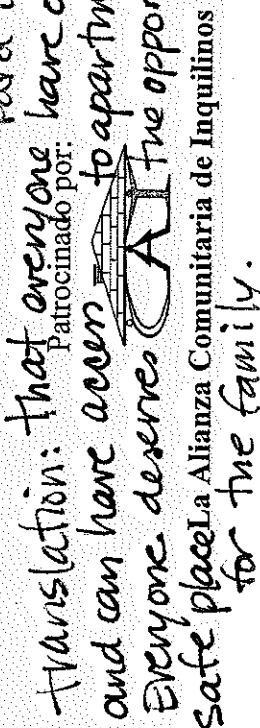 translation: that everyone have
Patrocinado por:
and can have access to apartm
Everyone deserves the oppor
safe place La Alianza Comunitaria de Inquilinos
for the family.